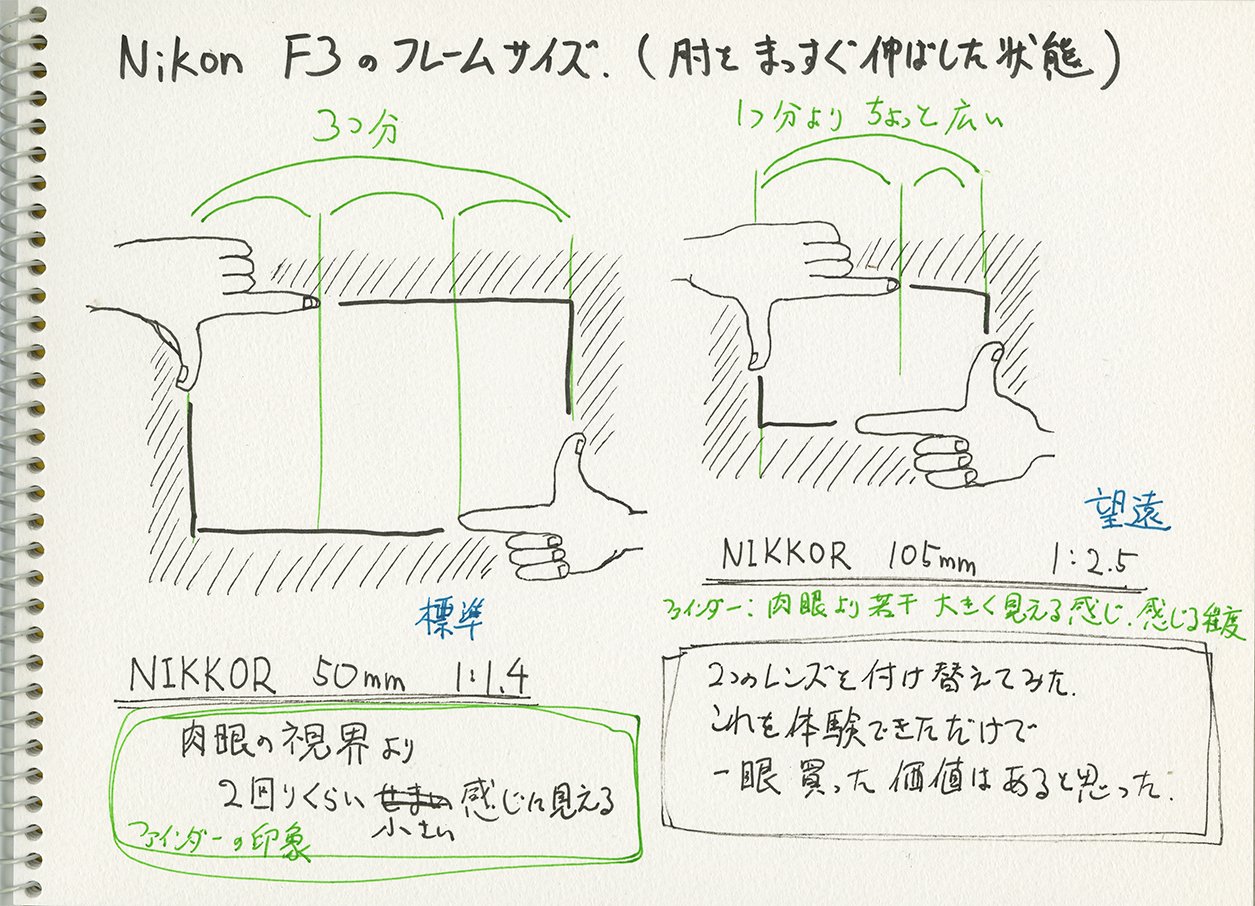 Nikon F3のフレームサイズ.(肘をまっすぐ伸ばした状態)
3つ分
標準
NIKKOR 50mm 1:1.4
肉眼の視界より
2回りくらい せまい 感じに見える
小さい
ファインダーの印象
1つ分より ちょっと広い
望遠
NIKKOR 105mm 1:2.5
ファインダー:肉眼より若干 大きく見える感じ.感じる程度
2つのレンズを付け替えてみた.
これを体験できただけで
一眼買った価値はあると思った.